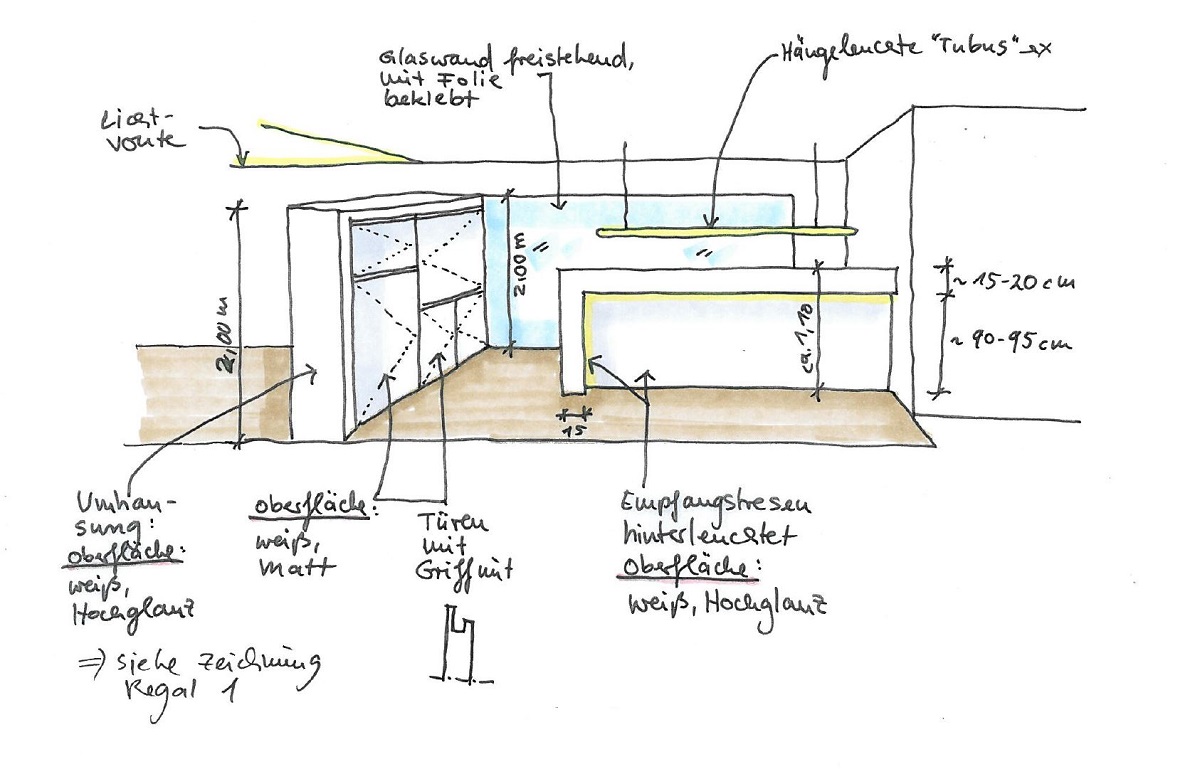 Glaswand freistehend,
mit Folie
beklebt
Hängeleuchte "Tubus"
Licht-
voute
2,00 m
2,00 m
ca. 1,10
~ 15-20 cm
~ 90-95 cm
15
Umhau-
sung:
Oberfläche:
weiß,
Hochglanz
=> siehe Zeichnung
Regal 1
Oberfläche:
weiß,
Matt
Türen
mit
Griffnut
Empfangstresen
hinterleuchtet
Oberfläche:
weiß, Hochglanz